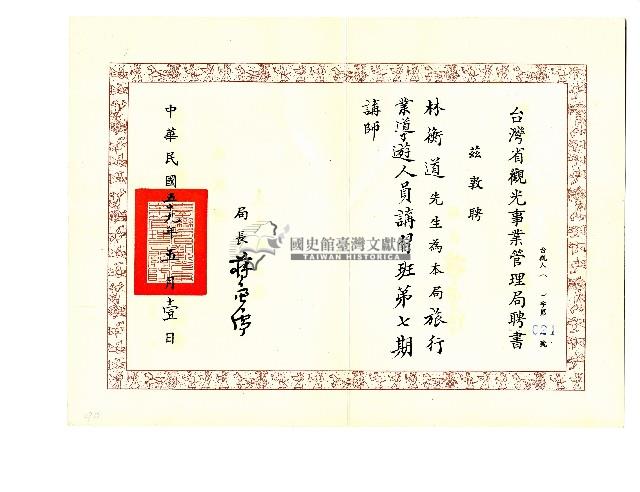 台灣省觀光事業管理局聘書
茲敦聘
林衡道先生為本局旅行
業導遊人員講習班第七期
講師
局長
中華民國五十九年五月壹日
國史館臺灣文獻館
TAIWAN HISTORICA